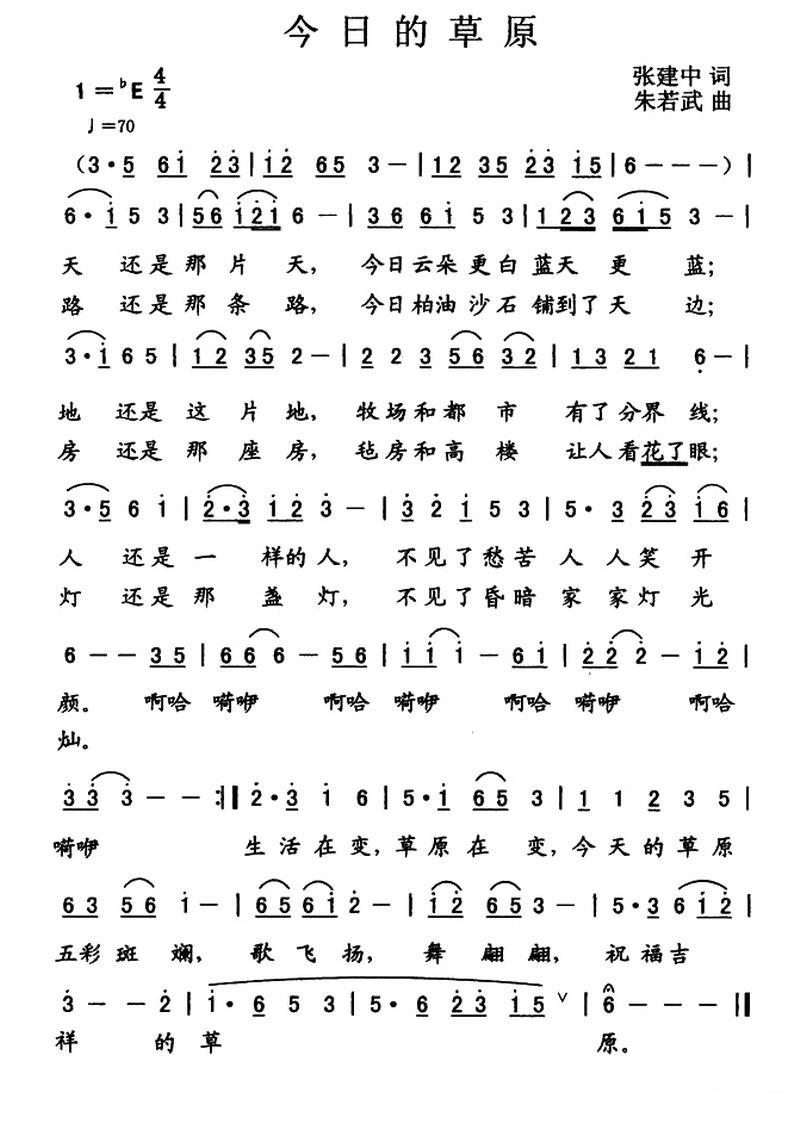 今日的草原
1=♭E 4/4
张建中 词
朱若武 曲
♩=70
(3·5 6i̇ 2̇3̇|i̇2̇ 65 3-|12 35 2̇3̇ i̇5|6---)|
6·i̇ 5 3|56 i̇2̇i̇ 6-|36 6i̇ 5 3|123 6i̇5 3-|
天 还是那 片 天, 今日云朵更白 蓝天 更 蓝;
路 还是那 条 路, 今日柏油沙石 铺到了天 边;
3·i̇ 6 5|12 35 2-|2 2 3 56 32|1 3 21 6̣-|
地 还是 这 片地, 牧场和都 市 有了分界 线;
房 还是 那 座房, 毡房和高 楼 让人看花了眼;
3·5 6 i̇|2̇·3̇ i̇2̇ 3̇-|3̇ 2̇ i̇ 5 3|5·3 2̇3̇ i̇6|
人 还是一 样的人, 不见了愁苦 人 人笑 开
灯 还是那 盏 灯, 不见了昏暗 家 家灯 光
6--35|66 6-56|i̇i̇ i̇-6i̇|2̇2̇ 2̇-i̇2̇|
颜。 啊哈 嗬咿 啊哈 嗬咿 啊哈 嗬咿 啊哈
灿。
3̇3̇ 3̇--:‖2̇·3̇ i̇ 6|5·i̇ 65 3|1 1 2 3 5|
嗬咿 生活在变,草原在 变,今天的草原
63 56 i̇-|65 6i̇ 2̇-|i̇2̇ 65 3-|5·3 6 i̇2̇|
五彩 斑 斓, 歌 飞 扬, 舞 翩 翩, 祝福吉
3̇--2̇|i̇·6 5 3|5·6 2̇3̇ i̇5 ∨|6---‖
祥 的 草 原。